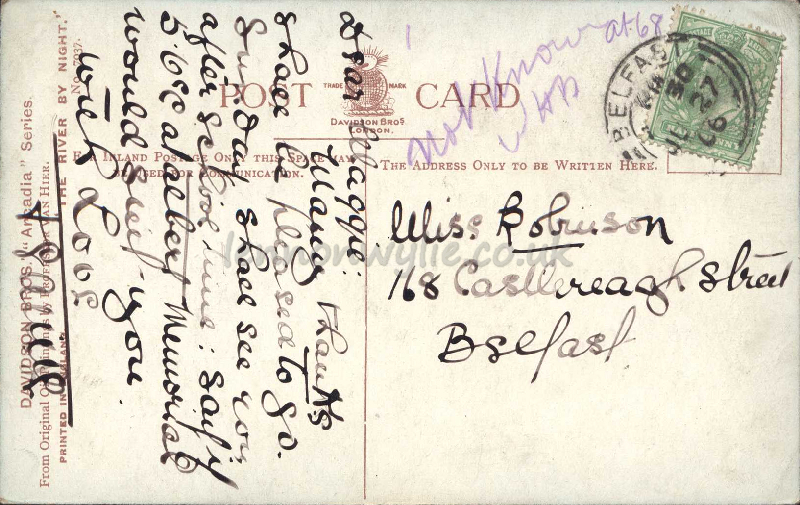 POST CARD
TRADE MARK
DAVIDSON BROS.
LONDON.
FOR INLAND POSTAGE ONLY THIS SPACE MAY
BE USED FOR COMMUNICATION.
THE ADDRESS ONLY TO BE WRITTEN HERE.
Not Known at 68
BELFAST
30
JL 27
06
Miss Robinson
168 Castlereagh Street
Belfast
Dear Maggie:
Many thanks
shall be pleased to go.
Sun. day shall see you
after school time: say if
at Albert Memorial
would suit you
with Love
DAVIDSON BROS. "Arcadia" Series.
From Original Oil Paintings by PROFESSOR VAN HIER.
PRINTED IN ENGLAND
"THE RIVER BY NIGHT."
No. 7037.
lennonwylie.co.uk